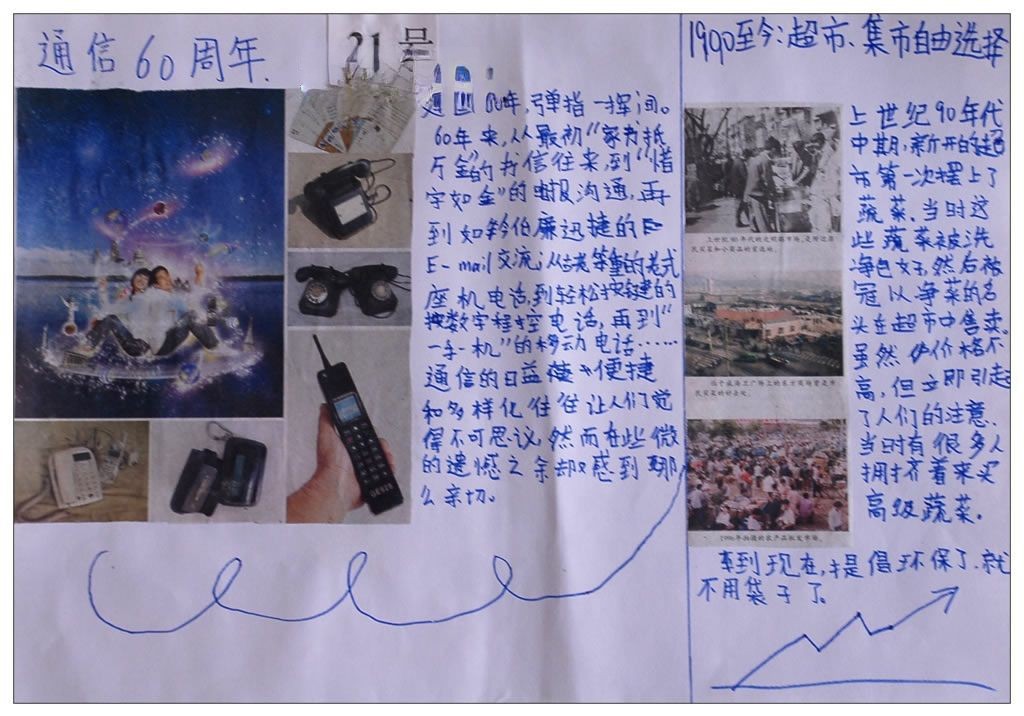 通信60周年.
21号
60年,弹指一挥间。
60年来,从最初"家书抵
万金"的书信往来,到"惜
字如金"的电报沟通,再
到如今伯廉迅捷的E
E-mail交流;从古老笨重的老式
座机电话,到轻松按键的
数字程控电话,再到"
一手一机"的移动电话……
通信的日益便捷
和多样化往往让人们觉
得不可思议,然而在些微
的遗憾之余却又感到那
么亲切。
1990至今:超市、集市自由选择
上世纪90年代
中期,新开的超
市第一次摆上了
蔬菜.当时这
些蔬菜被洗
净包好,然后被
冠以净菜的名
头在超市中售卖.
虽然价格不
高,但立即引起
了人们的注意.
当时有很多人
拥挤着来买
高级蔬菜.
车到现在,提倡环保了.就
不用袋子了。
1996年拍摄的农产品批发市场。